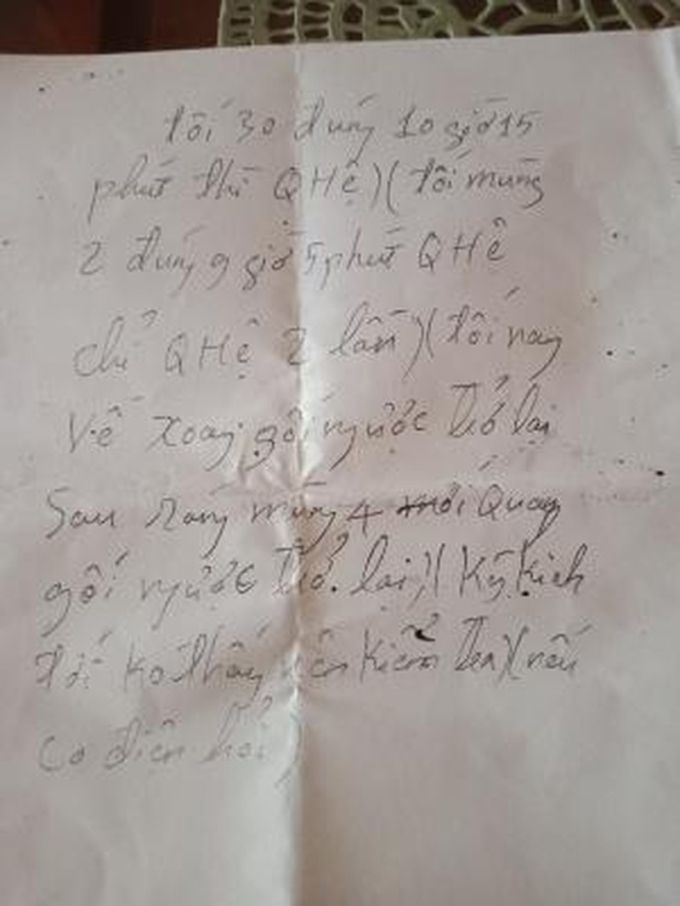 tối 30 đúng 10 giờ 15
phút thì QHệ)(tối mùng
2 đúng 9 giờ 5 phút QHệ
chỉ QHệ 2 lần)(tối nay
Về xoay gối ngược trở lại
Sau sáng mùng 4 Quay
gối ngược trở lại)(Kỵ Kịch
Ko thấy Kiểm tra)(nếu
có điện hỏi)